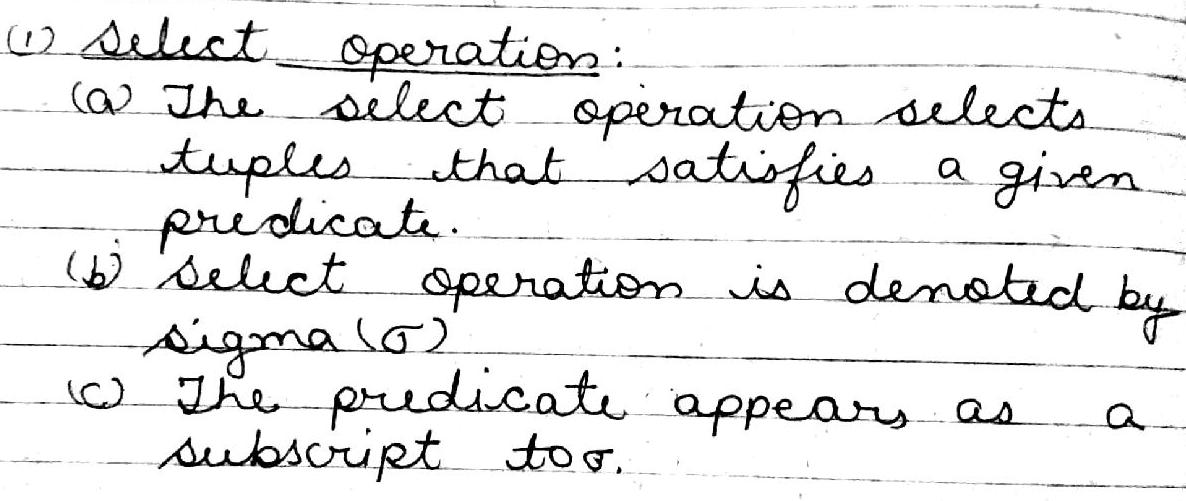 (1) Select operation:
(a) The select operation selects
tuples that satisfies a given
predicate.
(b) Select operation is denoted by
sigma (σ)
(c) The predicate appears as a
subscript to σ.